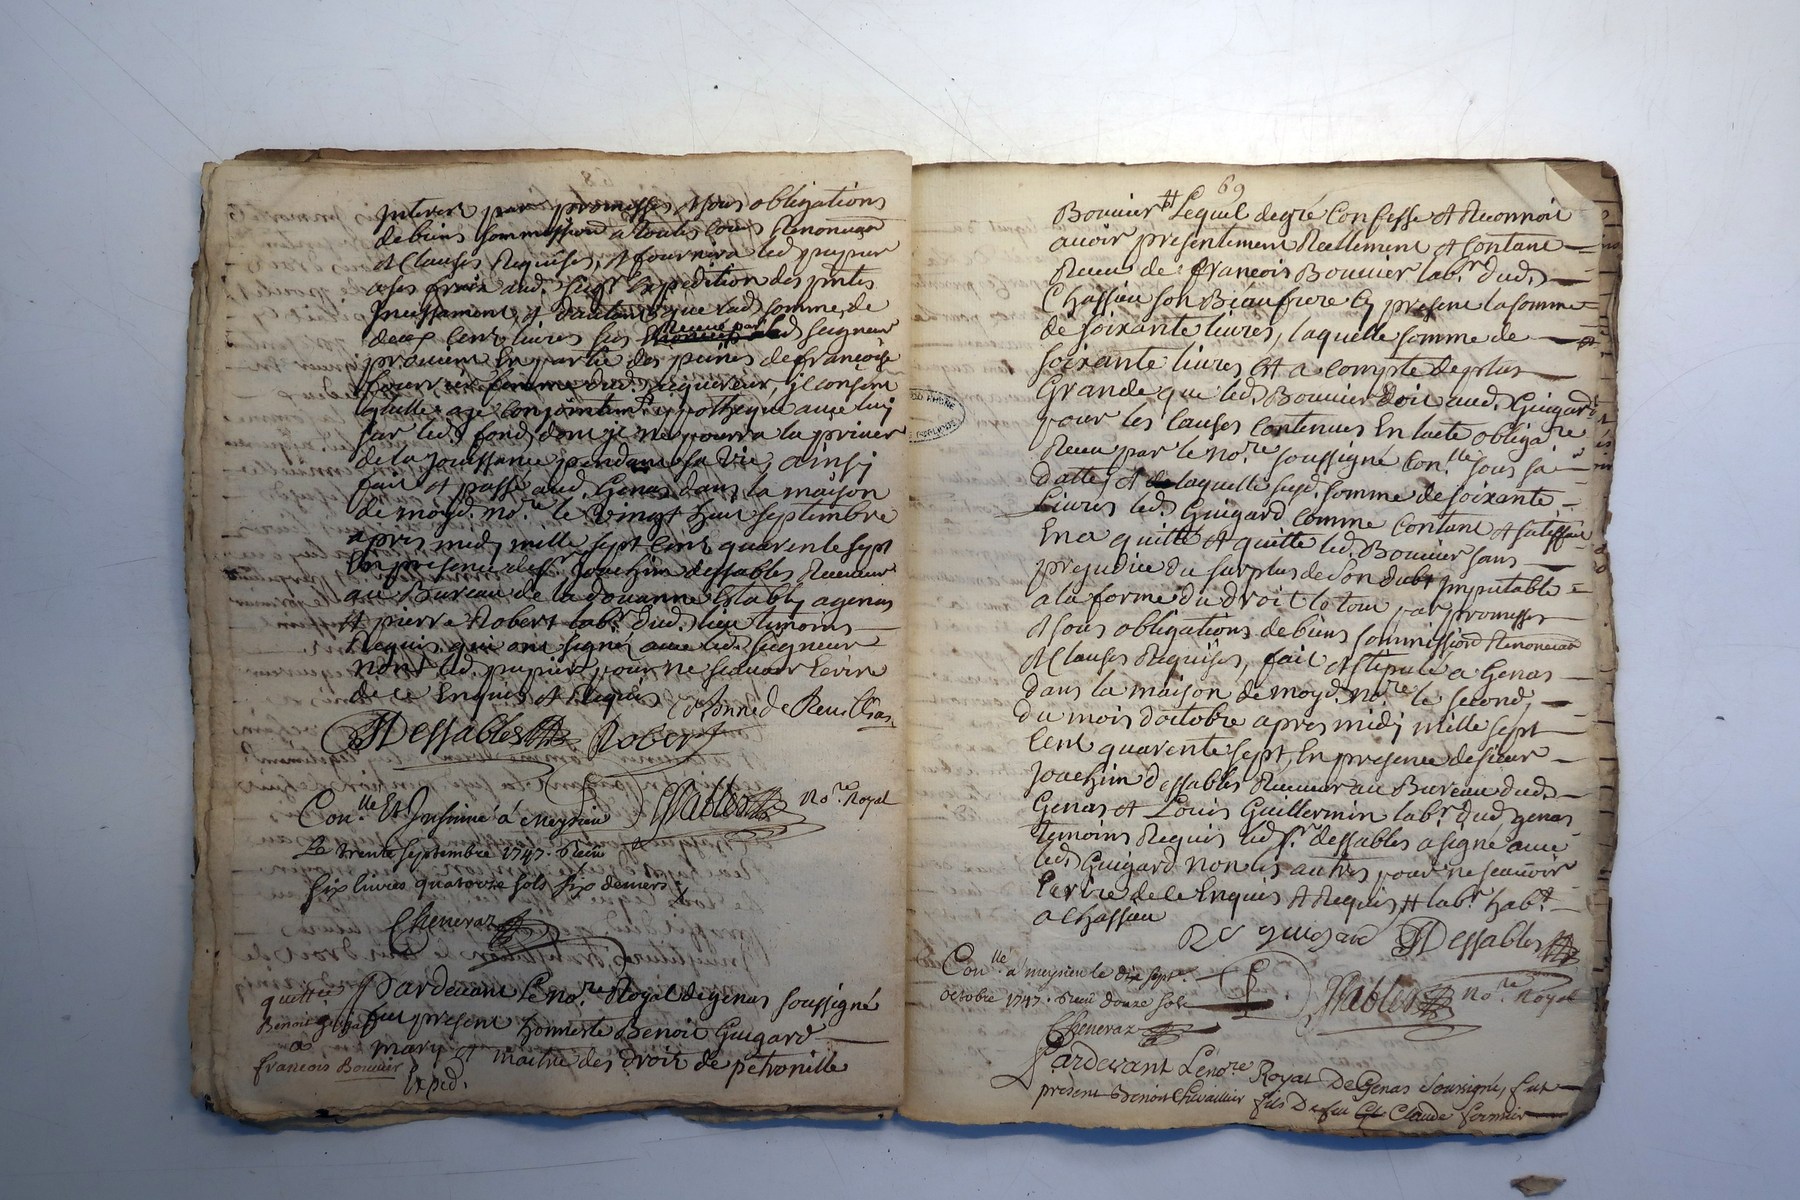 68
Interest par promesses, sous obligations
de biens soummissions a toutes cours Renonciaon
et Clauses Requises, et fournira led papier
a ses fraix aud. Sugr Expedition des pntes
Incessament, et d'autant que lad. somme de
deux cent livres sus Receue par led Seigneur
provient En partie des
femme dud. il consent
qu'elle aye conjointemt. hypotheque avec luy
sur led. fond, dont je ne pourra la priver
de la jouissance pendant sa vie, ainsi
fait et passé aud. Genas dans la maison
de moyd. no.re le vingt huit septembre
apres midy mille sept cent quarente sept
En presence de Sr. Joachim dessables Receveur
au Bureau de la douanne Estably a genas
et pierre Robert lab.r dud. lieu temoins
Requis qui ont signé, avec led. seigneur
non led. papier pour ne scavoir Ecrire
de ce Enquis et Requis
Dessables Robert
Con.llé Et Insinué à meyzieu Dessables no.re Royal
Le trente septembre 1747. Reçu
six livres quatorze sols six deniers
Cheneraz
quittce
Benoit guigard
a
francois Bouvier
Pardevant Le no.re Royal de genas soussigné
fut present honneste Benoit Guigard
mary et maitre des droit de petronille
Exped.
69
Bouvier # Lequel de gré Confesse et Reconnoit
avoir presentement Reellement et Contant
Receu de francois Bouvier lab.r dud.
Chassieu son Beaufrere Cy present la somme
de soixante livres, laquelle somme de
soixante livres Et a compte de plus
Grande que led. Bouvier doit aud. Guigard
pour les Causes Contenues En lacte obliga.re
Receu par le no.re soussigné Con.llé sous sa
datte, et de laquelle susd. somme de soixante
Livres led. Guigard comme Contant et satisfait
En a quitté et quitte led. Bouvier sans
prejudice du surplus de son dub Imputable
a la forme du droit le tout par promesses
et sous obligations de biens sommissions Renonciaon
et Clauses Requises, fait et stipulé a Genas
dans la maison de moyd. no.re le second
du mois d'octobre apres midy mille sept
Cent quarente sept, En presence de sieur
Joachim dessables Receveur au Bureau dud.
Genas et Louis Guillermin lab.r dud genas
temoins Requis led sr. dessables a signé avec
led. Guigard non les autres pour ne scavoir
Ecrire de ce Enquis et Requis, # lab.r hab.t
a Chassieu
guigard Dessables
Con.llé a meyzieu le dix sept
octobre 1747. Reçu douze sols Dessables no.re Royal
Cheneraz
Pardevant Le no.re Royal De Genas soussigné, fut
présent Benoit Chevallier fils De feu Claude